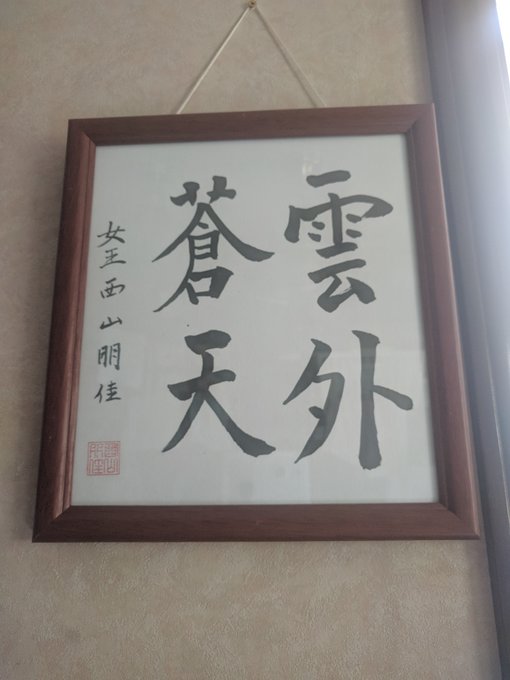 雲外
蒼天
女王西山明佳